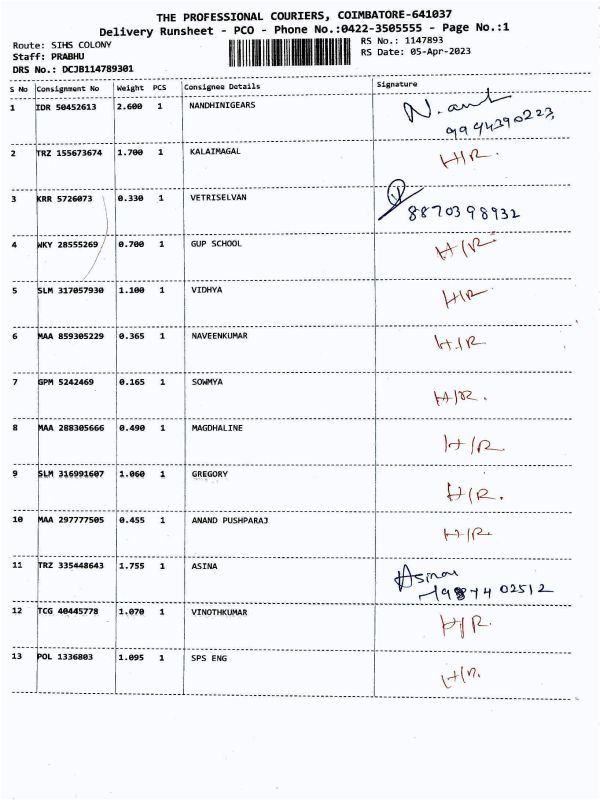 THE PROFESSIONAL COURIERS, COIMBATORE-641037
Delivery Runsheet - PCO - Phone No.:0422-3505555 - Page No.:1
Route: SIHS COLONY
RS No.: 1147893
Staff: PRABHU
RS Date: 05-Apr-2023
DRS No.: DCJB114789301
S No Consignment No Weight PCS Consignee Details Signature
1 IDR 50452613 2.600 1 NANDHINIGEARS
9944390223
2 TRZ 155673674 1.700 1 KALAIMAGAL H/R.
3 KRR 5726073 0.330 1 VETRISELVAN
8870398932
4 WKY 28555269 0.700 1 GUP SCHOOL H/R.
5 SLM 317057930 1.100 1 VIDHYA H/R
6 MAA 859305229 0.365 1 NAVEENKUMAR H/R.
7 GPM 5242469 0.165 1 SOWMYA H/R.
8 MAA 288305666 0.490 1 MAGDHALINE H/R.
9 SLM 316991607 1.060 1 GREGORY H/R.
10 MAA 297777505 0.455 1 ANAND PUSHPARAJ H/R.
11 TRZ 335448643 1.755 1 ASINA Asina
12 TCG 40445778 1.070 1 VINOTHKUMAR H/R.
13 POL 1336803 1.095 1 SPS ENG H/R.